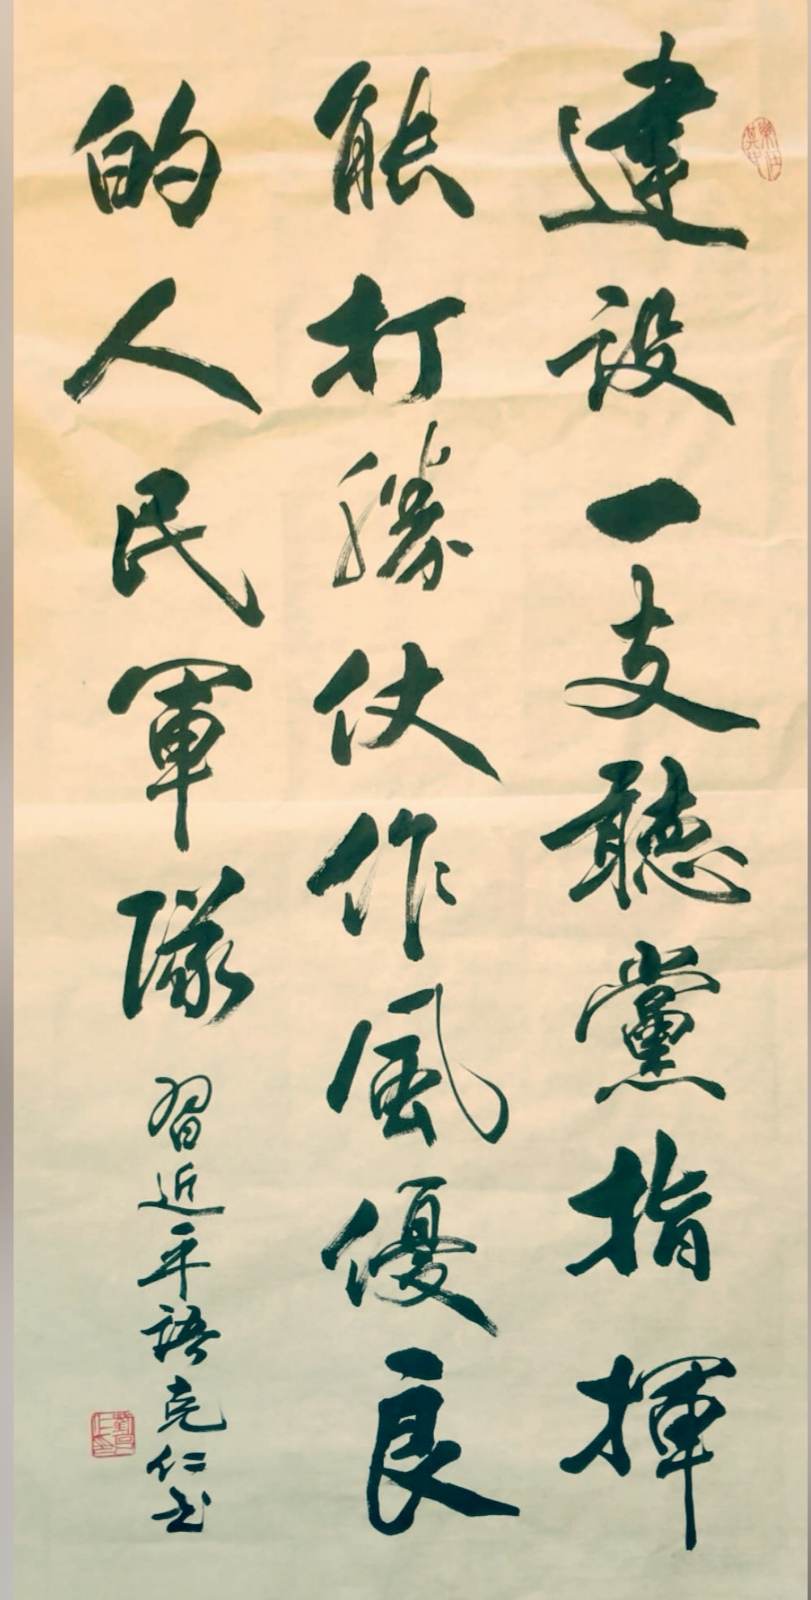 建设一支聽黨指揮
能打勝仗作風優良
的人民軍隊
習近平語克仁书